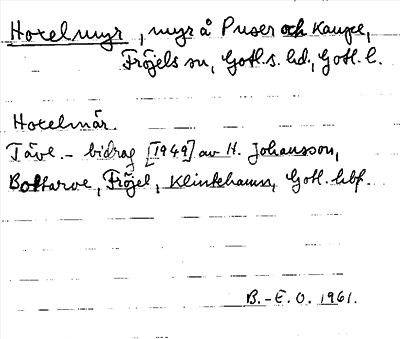 Hotelmyr, myr å Puser och Kaupe,
Fröjels sn, Gotl. s. hd., Gotl. l.
Hotelmär.
Tävl.- bidrag [1949] av H. Johansson,
Bottarve, Fröjel, Klintehamn, Gotl. hbf.
B.-E. O. 1961.